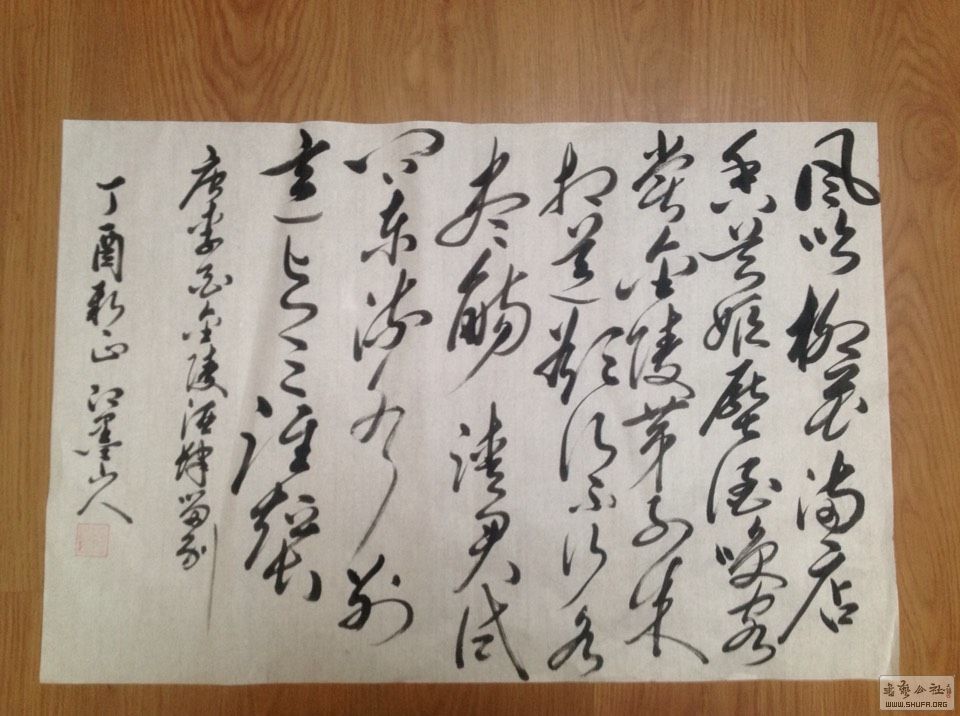 風吹柳花滿店
香吳姬壓酒喚客
嘗金陵弟子来
相送欲行不行各
盡觴請君試
問東流水別
意與之誰短長
唐李白金陵酒肆留別
丁酉新正江墨山人
書藝公社
WWW.SHUFA.ORG